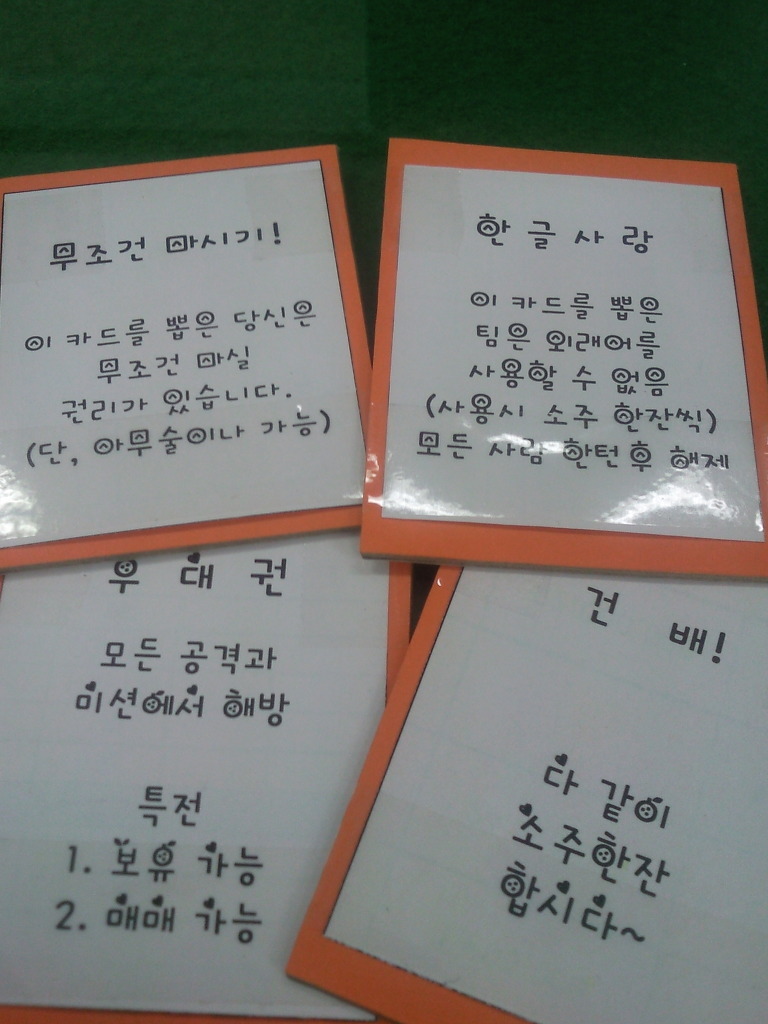 무조건 마시기!
이 카드를 뽑은 당신은
무조건 마실
권리가 있습니다.
(단, 아무술이나 가능)
한글사랑
이 카드를 뽑은
팀은 외래어를
사용할 수 없음
(사용시 소주 한잔씩)
모든 사람 한턴 후 해제
우대권
모든 공격과
미션에서 해방
특전
1. 보유 가능
2. 매매 가능
건배!
다 같이
소주한잔
합시다~